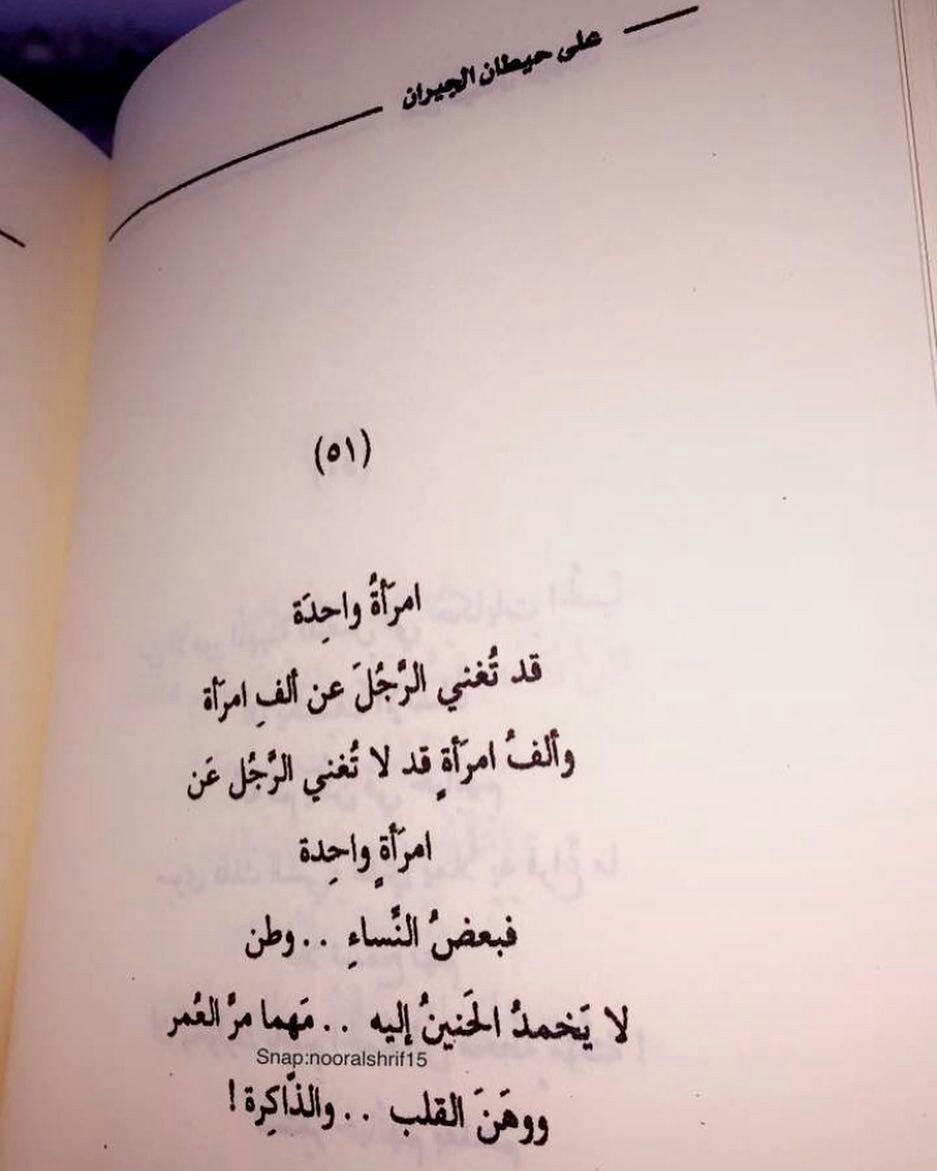 على حيطان الجيران
(٥١)
امرَأةٌ واحِدَة
قد تُغني الرَّجُلَ عن ألفِ امرَأة
وألفُ امرَأةٍ قد لا تُغني الرَّجُل عَن
امرَأةٍ واحِدة
فبعضُ النَّساءِ .. وطن
لا يَخمدُ الحَنينُ إليه .. مَهما مرَّ العُمر
Snap:nooralshrif15
ووهَنَ القلب .. والذَّاكِرة !